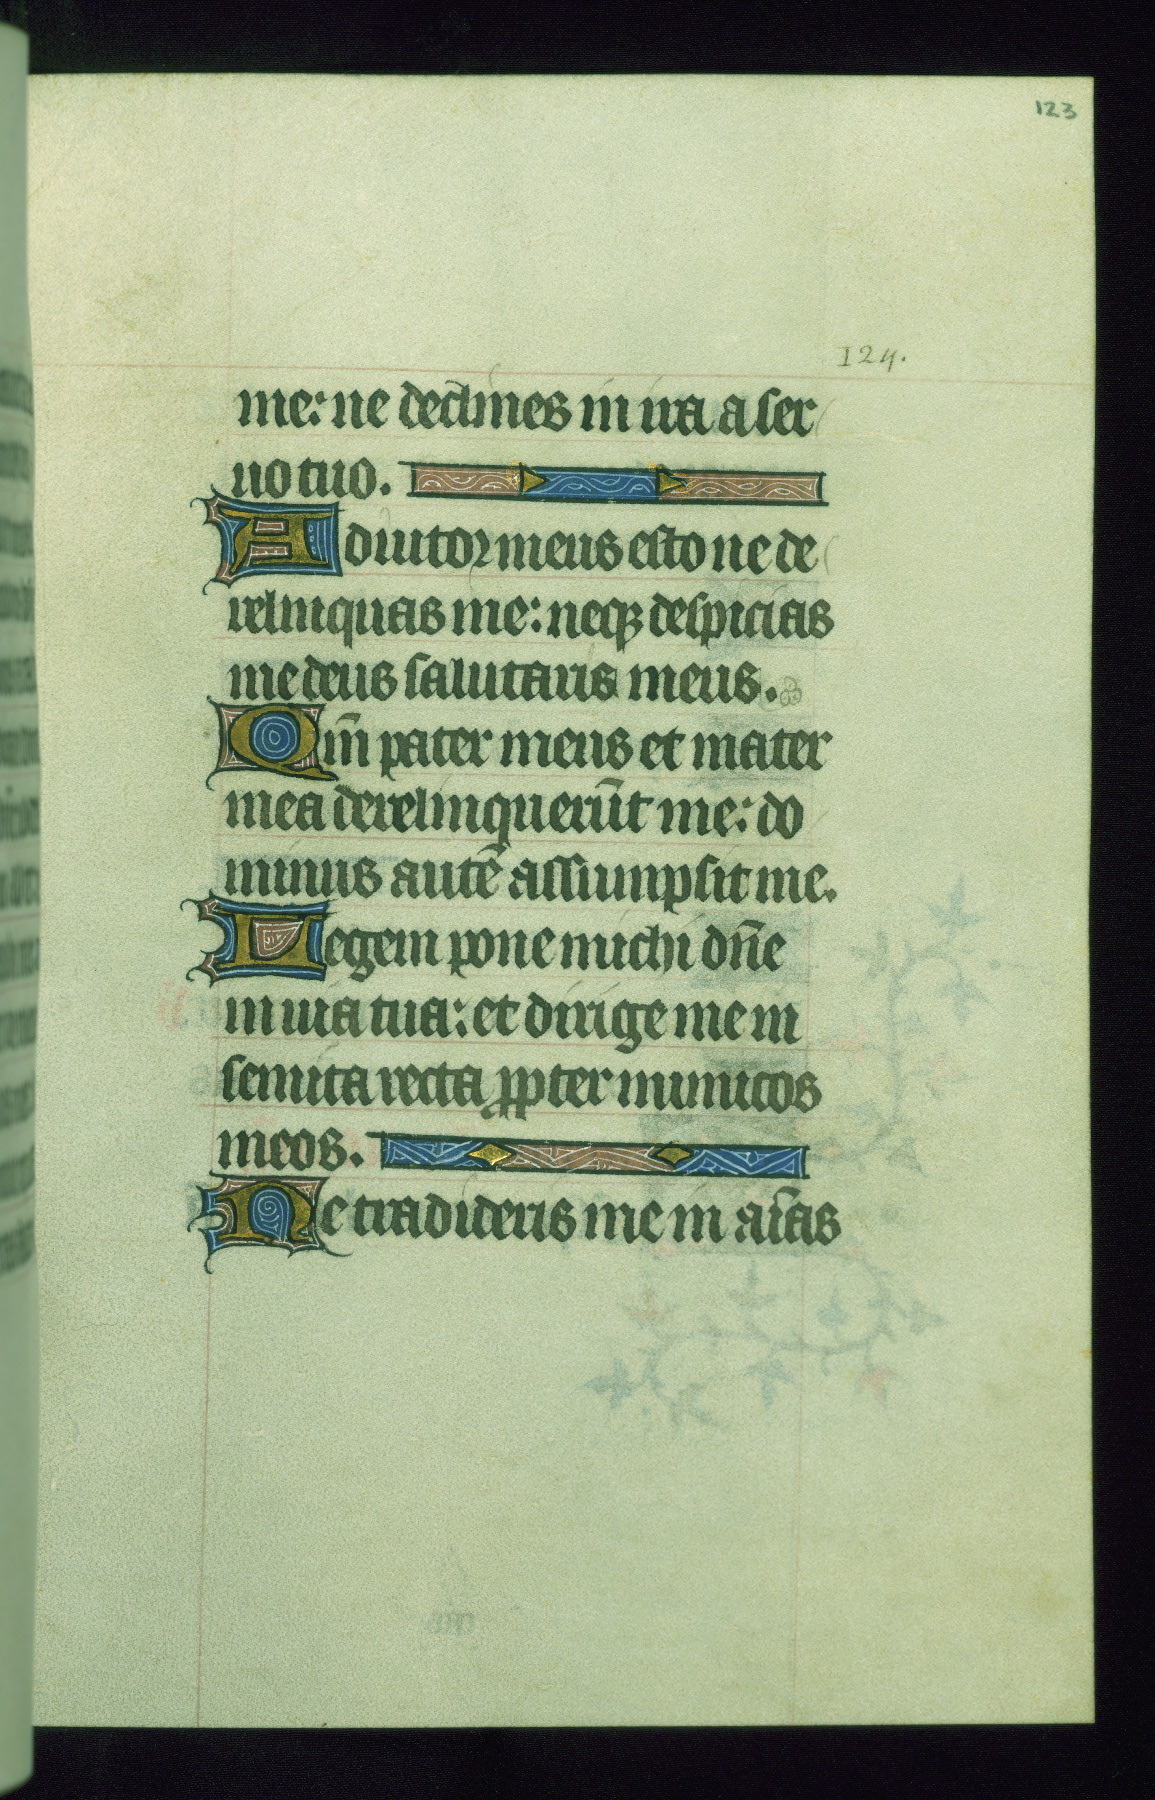 123
124.
me: ne declines in ira a ser
uo tuo.
Adiutor meus esto ne de
relinquas me: neqꝫ despicias
me deus salutaris meus.
Qm̄ pater meus et mater
mea derelinquerūt me: do
minus autē assumpsit me.
Legem pone michi dn̄e
in uia tua: et dirige me in
semita recta ꝓpter inimicos
meos.
Ne tradideris me in aīas